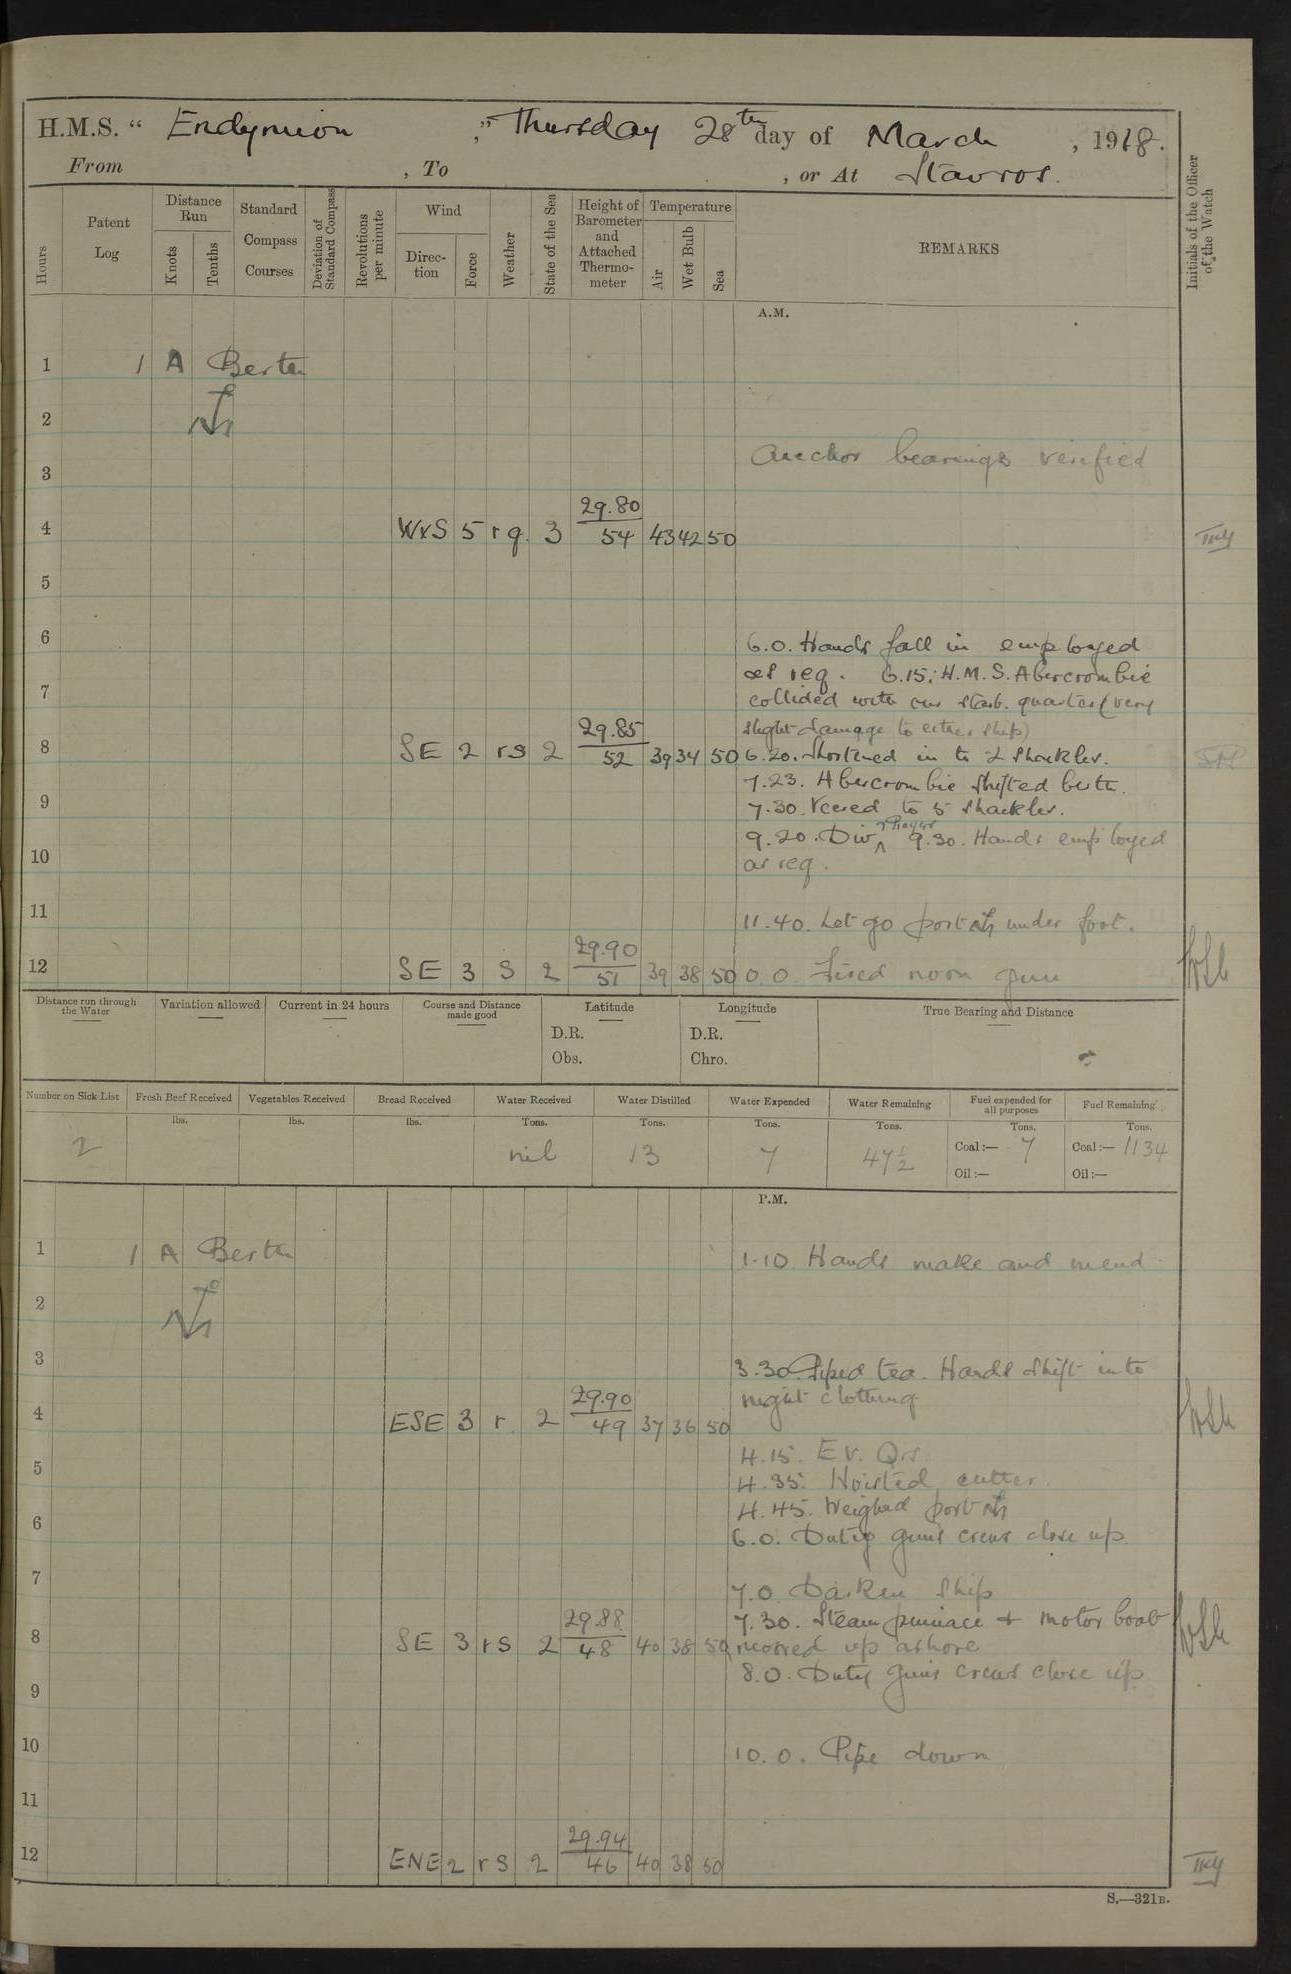 H.M.S. “ Endymion ,” Thursday 28th day of March , 1918.
From , To , or At Stavros.
Hours
Patent Log
Distance Run
Knots
Tenths
Standard Compass Courses
Deviation of Standard Compass
Revolutions per minute
Wind
Direc-tion
Force
Weather
State of the Sea
Height of Barometer and Attached Thermo-meter
Temperature
Air
Wet Bulb
Sea
REMARKS
Initials of the Officer of the Watch
A.M.
1 1 A Berth
2
Anchor bearings verified
3
29.80
4 WxS 5 r q. 3 54 43 42 50
5
6 6.0. Hands fall in employed
as req. 6.15: H.M.S. Abercrombie
7 collided with our starb. quarter (very
29.85 slight damage to either ship)
8 SE 2 rs 2 52 39 34 50 6.20. Shortened in to 2 Shackles.
7.23. Abercrombie Shifted berth.
9 7.30. Veered to 5 shackles.
9.20. Div + Prayers 9.30. Hands employed
10 as req.
11 11.40. Let go port under foot.
29.90
12 SE 3 S 2 51 39 38 50 0.0. Fired noon gun
Distance run through the Water
Variation allowed
Current in 24 hours
Course and Distance made good
Latitude
D.R.
Obs.
Longitude
D.R.
Chro.
True Bearing and Distance
Number on Sick List Fresh Beef Received Vegetables Received Bread Received Water Received Water Distilled Water Expended Water Remaining Fuel expended for all purposes Fuel Remaining
lbs. lbs. lbs. Tons. Tons. Tons. Tons. Tons. Tons.
2 nil 13 7 47½ Coal:— 7 Coal:— 1134
Oil:— Oil:—
P.M.
1 1 A Berth 1.10 Hands make and mend
2
3 3.30. Piped tea. Hands Shift into
29.90 night clothing
4 ESE 3 r. 2 49 37 36 50
4.15. Ev. Qrs.
5 4.35. Hoisted cutter.
4.45. Weighed port
6 6.0. Duty guns crews close up.
7 7.0 Darken Ship
29.88 7.30. Steam pinnace + motor boat
8 SE 3 rs 2 48 40 38 50 moored up ashore
8.0. Duty guns crews close up.
9
10 10.0. Pipe down
11
29.94
12 ENE 2 rs 2 46 40 38 50
S.—321B.